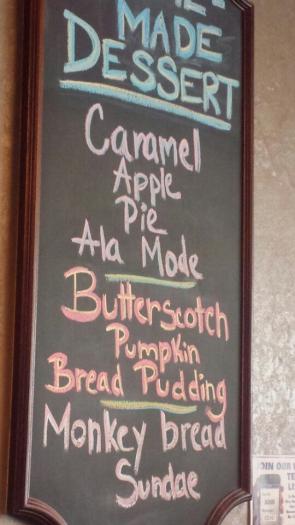 MADE
DESSERT
Caramel
Apple
Pie
Ala Mode
Butterscotch
Pumpkin
Bread Pudding
Monkey bread
Sundae
JOIN OUR